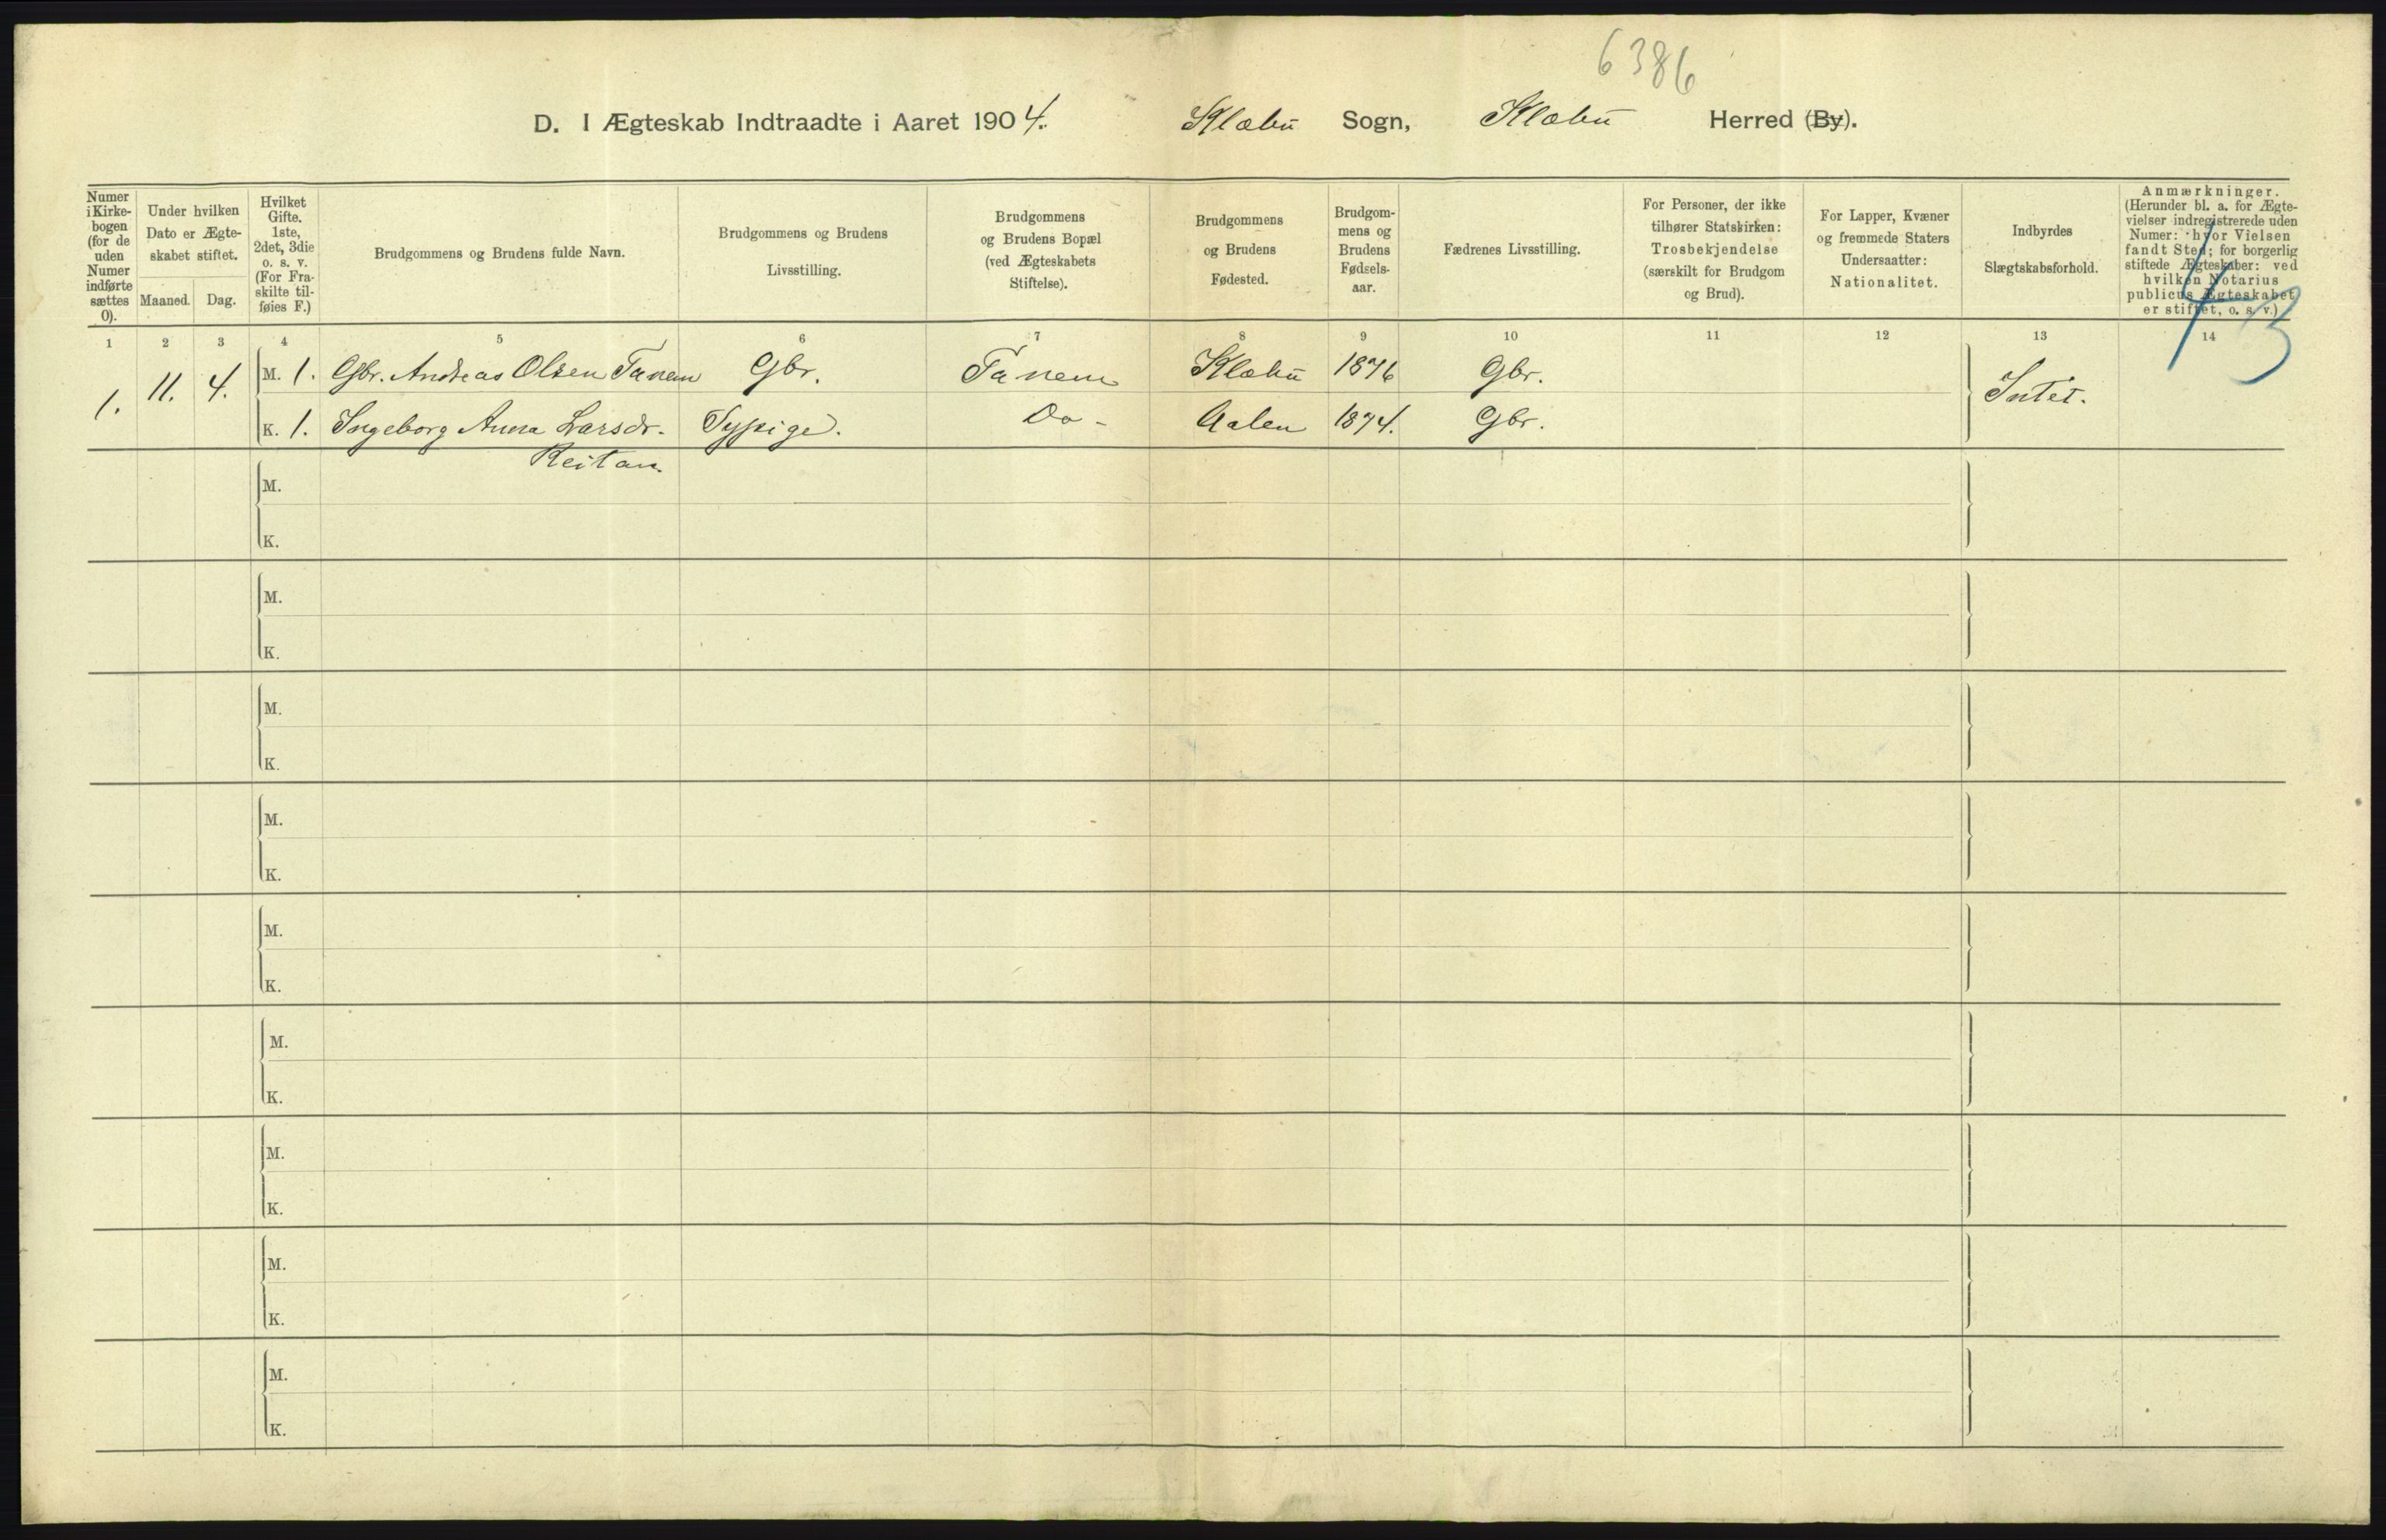 6386
D. I Ægteskab Indtraadte i Aaret 1904. Klæbu Sogn, Klæbu Herred (By).
Numer i Kirke-bogen (for de uden Numer indførte sættes 0).
Under hvilken Dato er Ægte-skabet stiftet.
Maaned. Dag.
Hvilket Gifte. 1ste, 2det, 3die o. s. v. (For Fra-skilte til-føies F.)
Brudgommens og Brudens fulde Navn.
Brudgommens og Brudens Livsstilling.
Brudgommens og Brudens Bopæl (ved Ægteskabets Stiftelse).
Brudgommens og Brudens Fødested.
Brudgom-mens og Brudens Fødsels-aar.
Fædrenes Livsstilling.
For Personer, der ikke tilhører Statskirken: Trosbekjendelse (særskilt for Brudgom og Brud).
For Lapper, Kvæner og fremmede Staters Undersaatter: Nationalitet.
Indbyrdes Slægtskabsforhold.
Anmærkninger. (Herunder bl. a. for Ægte-vielser indregistrerede uden Numer: hvor Vielsen fandt Sted; for borgerlig stiftede Ægteskaber: ved hvilken Notarius publicus Ægteskabet er stiftet, o. s. v.)
1 2 3 4 5 6 7 8 9 10 11 12 13 14
1. 11. 4. M. 1. Gbr. Andreas Olsen Tanem Gbr. Tanem Klæbu 1876 Gbr. Intet.
K. 1. Ingeborg Anna Larsdr. Sypige. Do - Aalen 1874. Gbr.
Reitan.
M.
K.
M.
K.
M.
K.
M.
K.
M.
K.
M.
K.
M.
K.
M.
K.
M.
K.